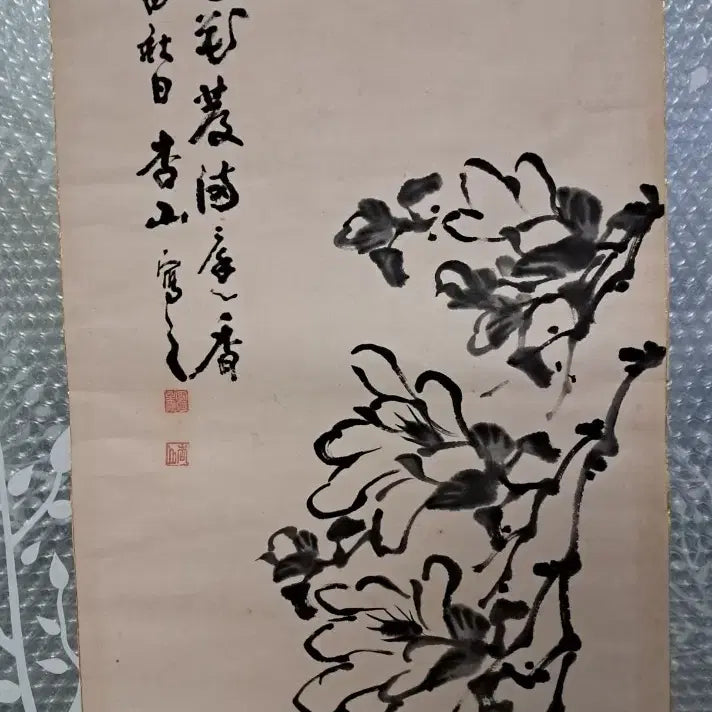 花發滿庭香
秋日 杏山 寫之